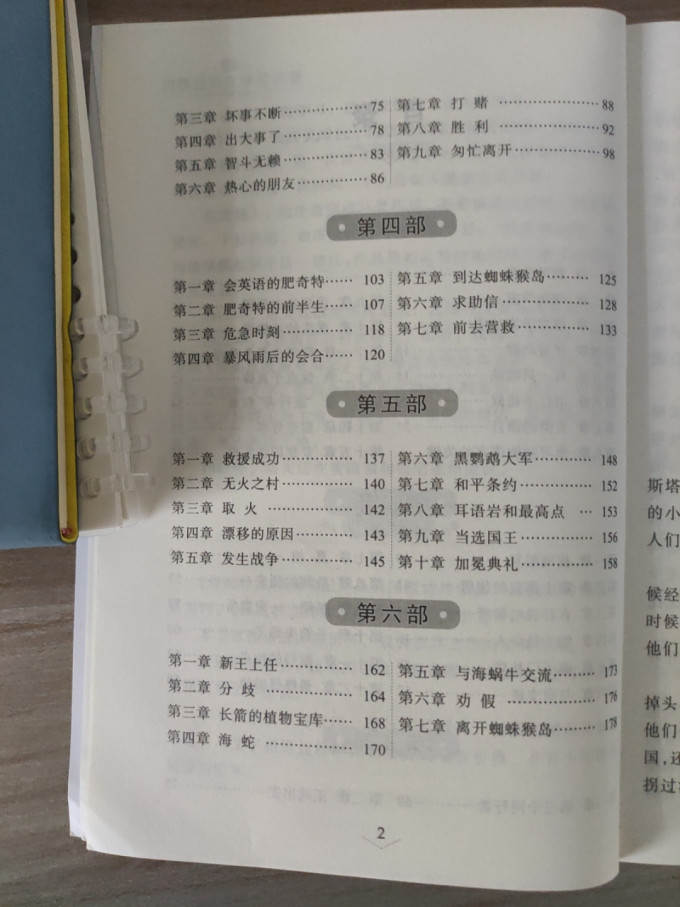 第三章 坏事不断……………75
第四章 出大事了……………78
第五章 智斗无赖……………83
第六章 热心的朋友…………86
第七章 打 赌 ………………88
第八章 胜 利 ………………92
第九章 匆忙离开……………98
第四部
第一章 会英语的肥奇特…… 103
第二章 肥奇特的前半生…… 107
第三章 危急时刻…………… 118
第四章 暴风雨后的会合…… 120
第五章 到达蜘蛛猴岛…… 125
第六章 求助信…………… 128
第七章 前去营救………… 133
第五部
第一章 救援成功………… 137
第二章 无火之村………… 140
第三章 取 火 …………… 142
第四章 漂移的原因……… 143
第五章 发生战争………… 145
第六章 黑鹦鹉大军……… 148
第七章 和平条约………… 152
第八章 耳语岩和最高点 … 153
第九章 当选国王………… 156
第十章 加冕典礼………… 158
第六部
第一章 新王上任………… 162
第二章 分 歧 …………… 164
第三章 长箭的植物宝库… 168
第四章 海 蛇 …………… 170
第五章 与海蜗牛交流…… 173
第六章 劝 假 …………… 176
第七章 离开蜘蛛猴岛…… 178
2
斯塔
的小
人们
候经
时候
他们
掉头
他们
国,还
拐过